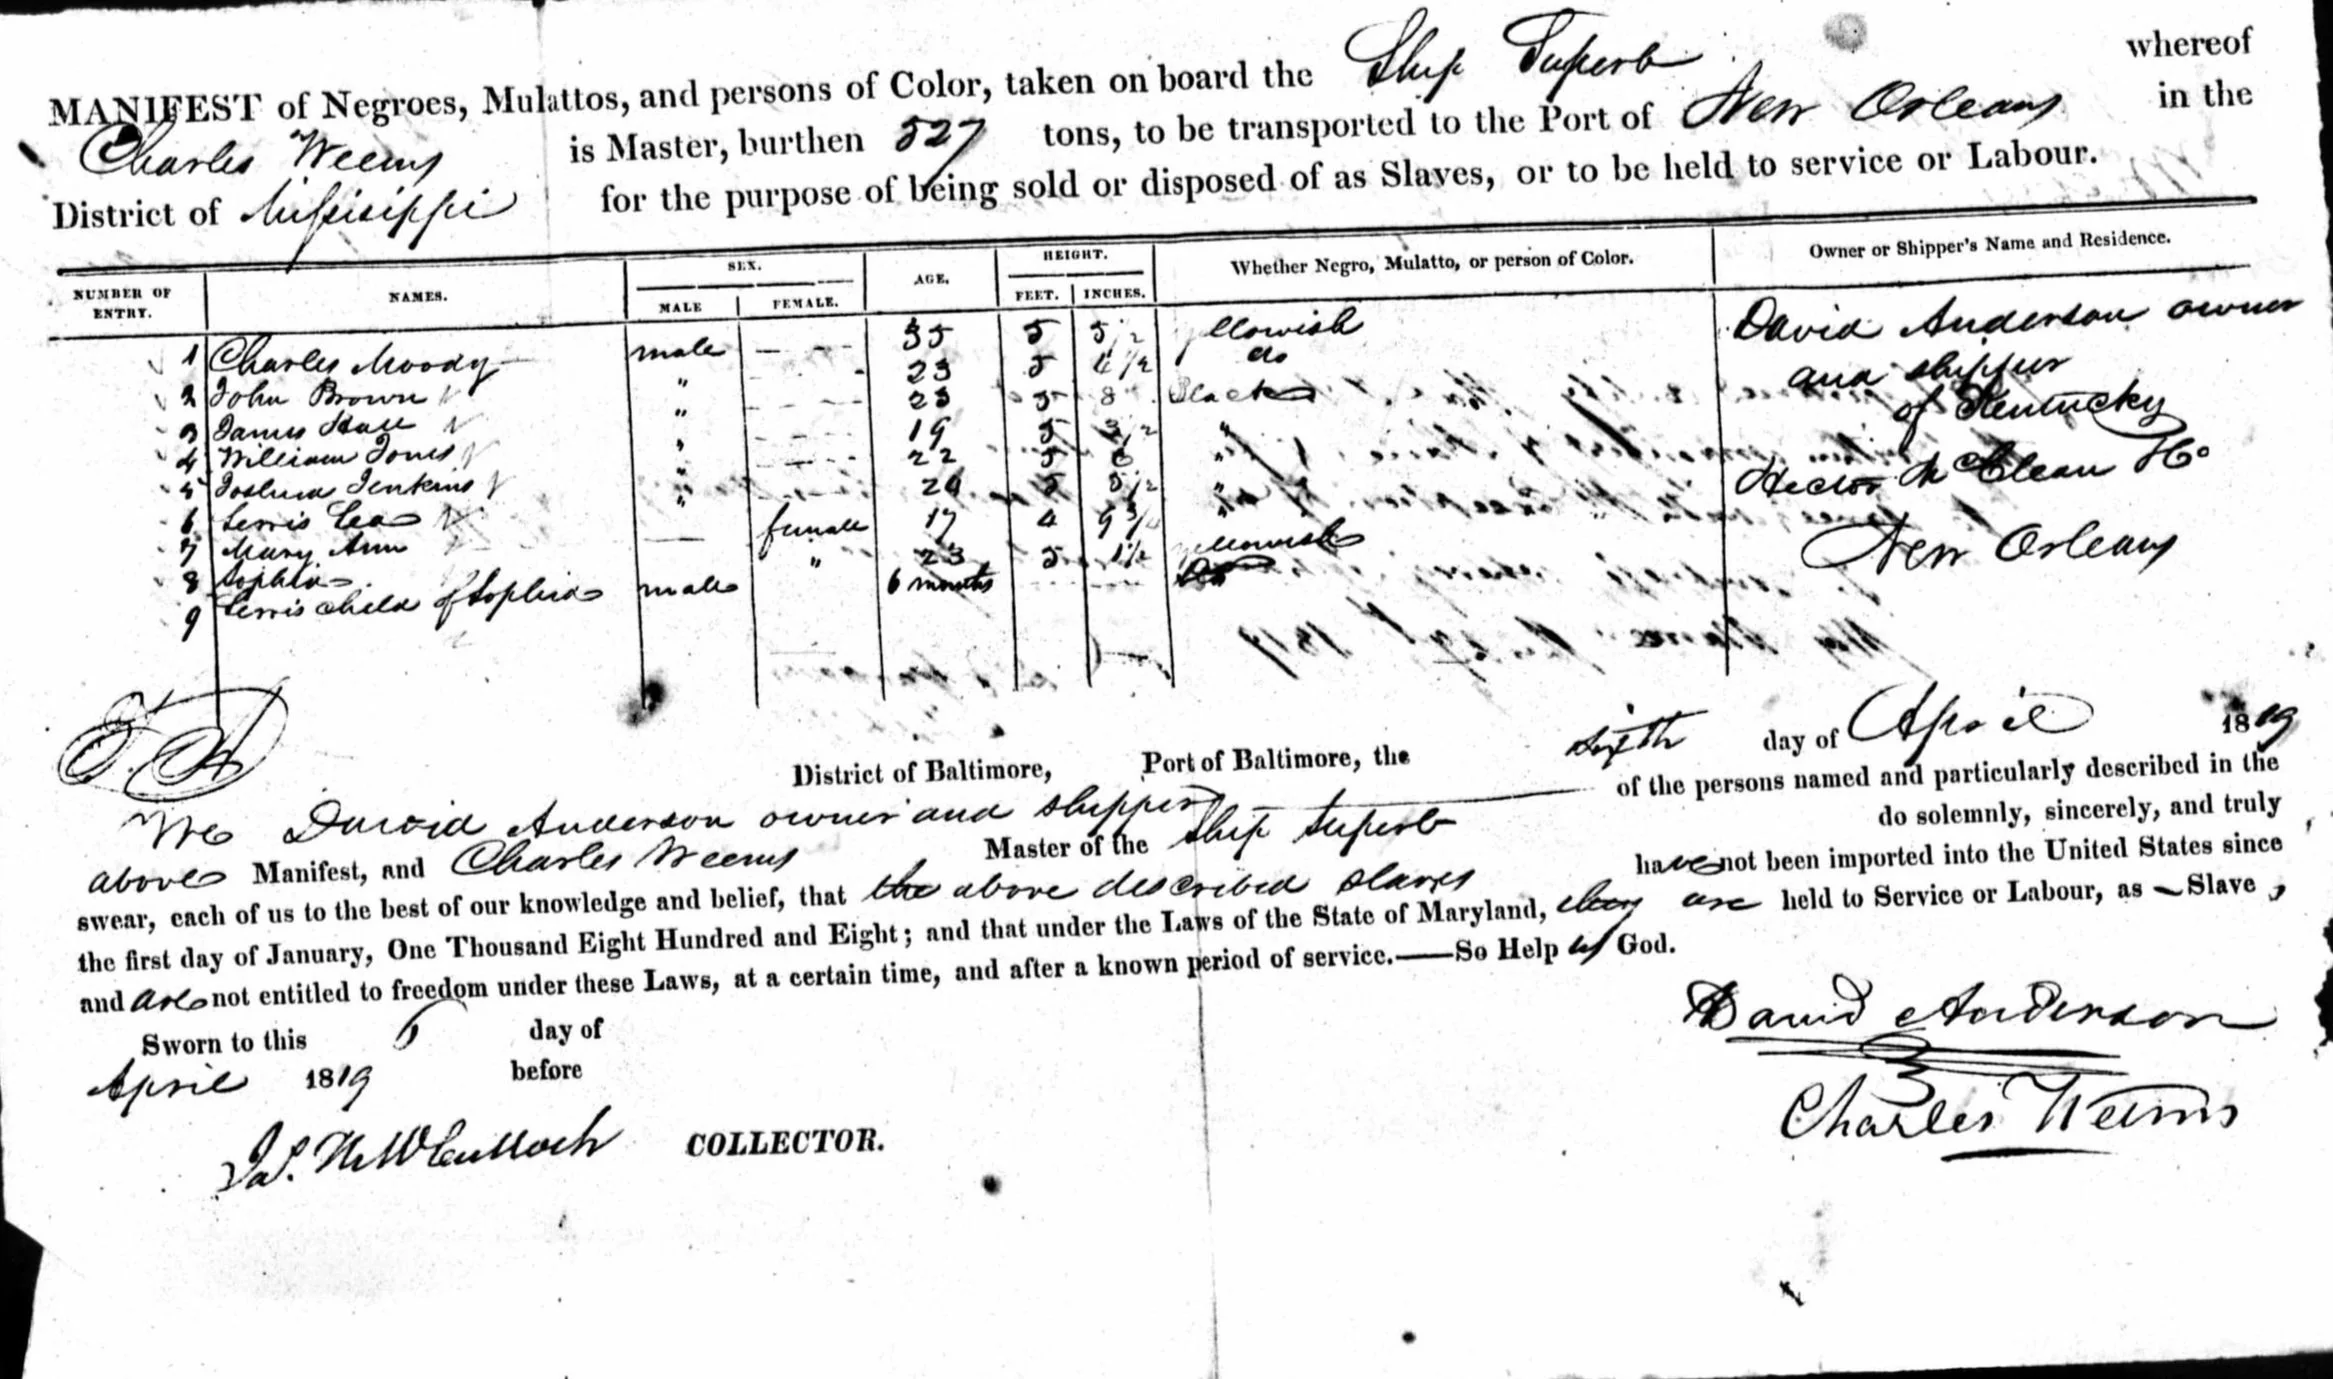 MANIFEST of Negroes, Mulattos, and persons of Color, taken on board the Ship Superb whereof
Charles Weems is Master, burthen 527 tons, to be transported to the Port of New Orleans in the
District of Missisippi for the purpose of being sold or disposed of as Slaves, or to be held to service or Labour.
NUMBER OF ENTRY. NAMES. SEX. MALE FEMALE. AGE. HEIGHT. FEET. INCHES. Whether Negro, Mulatto, or person of Color. Owner or Shipper's Name and Residence.
1 Charles Moody male 35 5 5 1/2 yellowish David Anderson owner
2 John Brown " 23 5 4 1/2 do and shipper
3 James Hall " 23 5 8 Black of Kentucky
4 William Jones " 19 5 3 1/2 "
5 Joshua Jenkins " 22 5 6 " Hector McClean &Co
6 Lewis Lea " 5 5 1/2 "
7 Mary Ann female 17 4 9 3/4 " New Orleans
8 Sophia " 23 5 1 1/2 yellowish
9 Lewis child of Sophia male 6 months
District of Baltimore, Port of Baltimore, the sixth day of April 1819
We David Anderson owner and shipper of the persons named and particularly described in the
above Manifest, and Charles Weems Master of the Ship Superb do solemnly, sincerely, and truly
swear, each of us to the best of our knowledge and belief, that the above described slaves have not been imported into the United States since
the first day of January, One Thousand Eight Hundred and Eight; and that under the Laws of the State of Maryland, they are held to Service or Labour, as Slave,
and are not entitled to freedom under these Laws, at a certain time, and after a known period of service.—So Help us God.
Sworn to this 6 day of
April 1819 before
David Anderson
Charles Weems
Jas. H. McCulloch COLLECTOR.